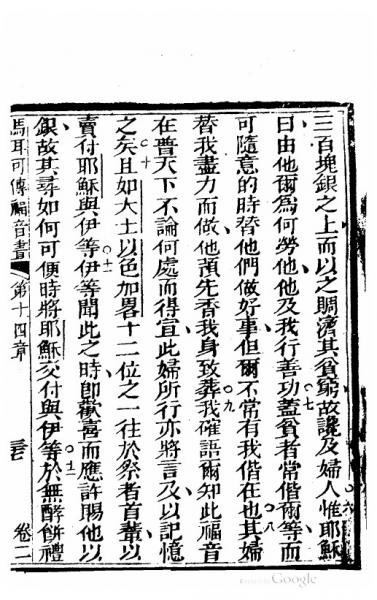 三百塊銀之上而以之賙濟其貧窮故讒及婦人○六惟耶穌
曰由他爾為何勞他他及我行善功○七蓋貧者常偕爾等而
可隨意的時替他們做好事但爾不常有我偕在也○八其婦
替我盡力而做他預先香我身致葬○九我確語爾知此福音
在普天下不論何處而得宣此婦所行亦將言及以記憶
之矣○十且如大士以色加畧十二位之一往於祭者首輩以
賣付耶穌與伊等○十一伊等聞此之時即歡喜而應許賜他以
銀故其尋如何可便時將耶穌交付與伊等○十二於無酵餅禮
馬耳可傳福音書 第十四章 卷二
Google